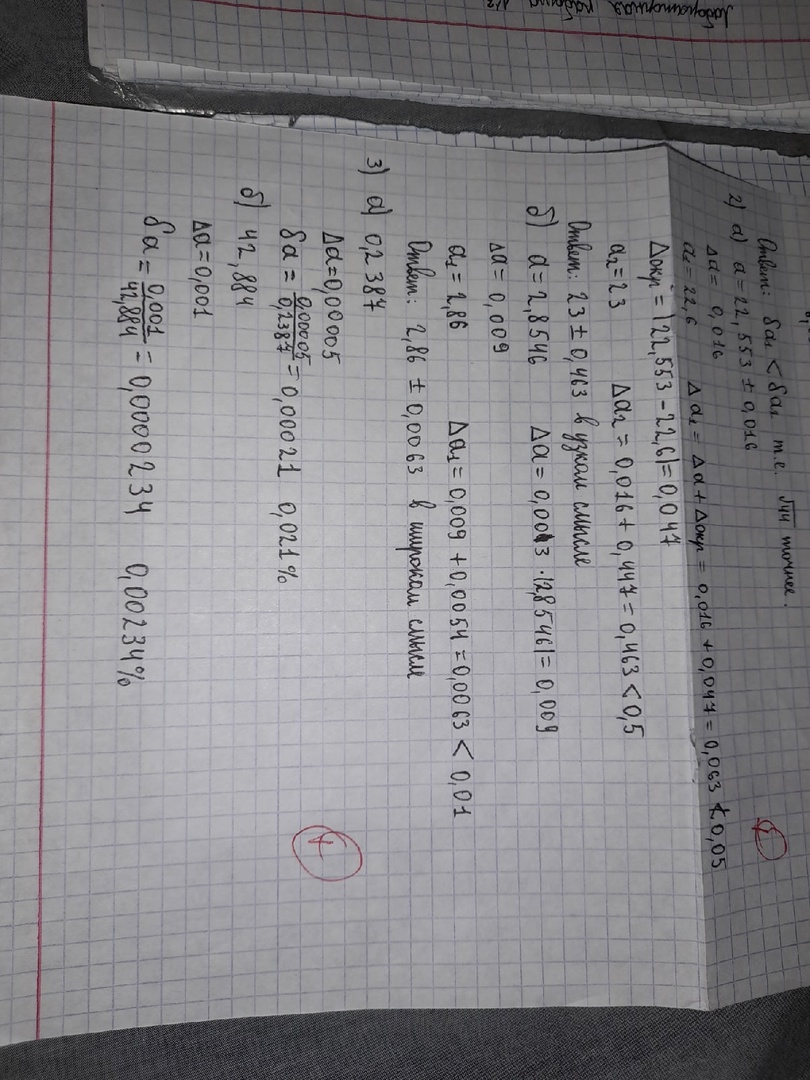 Лабораторная работа №2
Ответ: δa₁ < δa₂ т.е. √44 точнее.
2) а) a = 22,553 ± 0,016
Δa = 0,016
a₁ = 22,6 Δa₁ = Δa + Δокр = 0,016 + 0,047 = 0,063 < 0,05
Δокр = |22,553 - 22,6| = 0,047
a₂ = 23 Δa₂ = 0,016 + 0,447 = 0,463 < 0,5
Ответ: 23 ± 0,463 в узком смысле
б) a = 2,8546 Δa = 0,003 · |2,8546| = 0,009
Δa = 0,009
a₁ = 2,86 Δa₁ = 0,009 + 0,0054 = 0,0063 < 0,01
Ответ: 2,86 ± 0,0063 в широком смысле
3) а) 0,2387
Δa = 0,00005
δa = 0,00005/0,2387 = 0,00021 0,021%
б) 42,884
Δa = 0,001
δa = 0,001/42,884 = 0,0000234 0,00234%